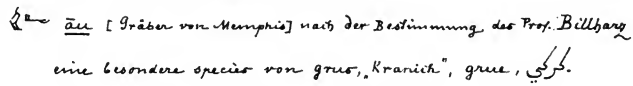 āu [Gräber von Memphis] nach der Bestimmung des Prof. Billharz
eine besondere species von grus, „Kranich“, grue, كركي.